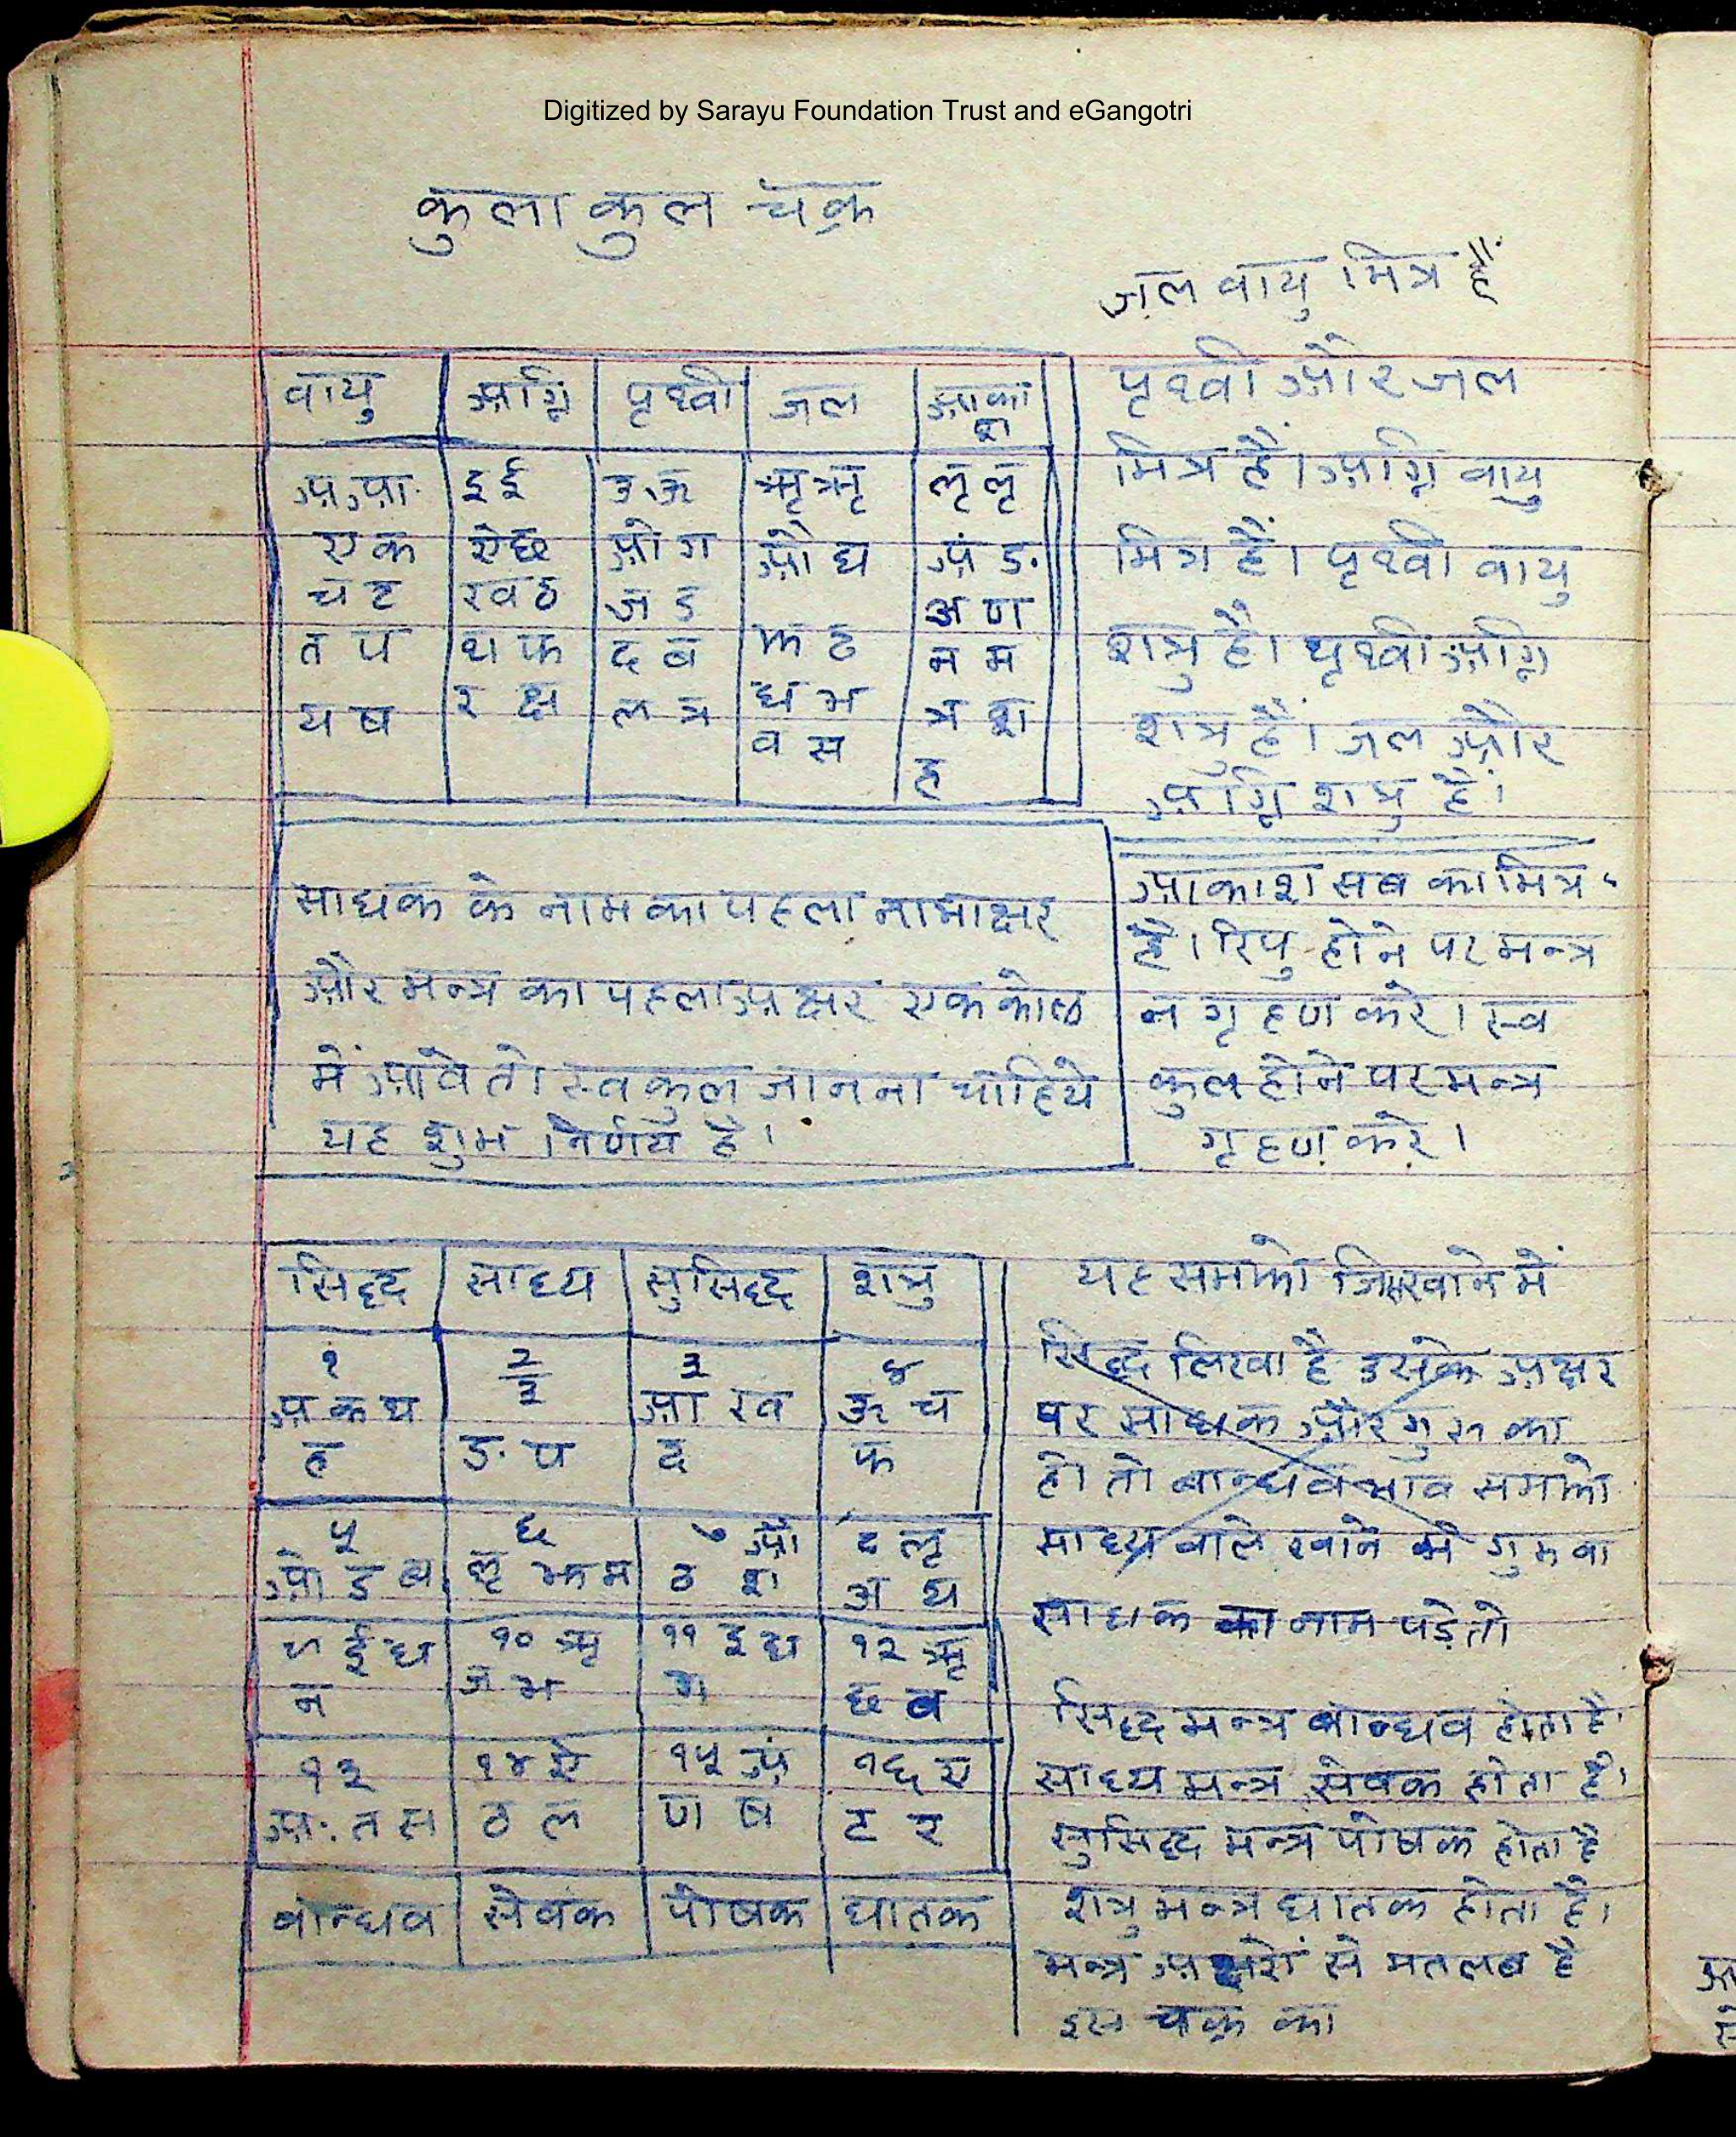 Digitized by Sarayu Foundation Trust and eGangotri
कुला कुल चक्र
जल वायु मित्र हैं
वायु अग्नि पृथ्वी जल आकाश
अ आ इ ई उ ऊ ऋ ॠ लृ लॄ
ए क ऐ छ ओ ग औ घ अं ङ
च ट ख ठ ज ड झ ढ ञ ण
त प थ फ द ब ध भ न म
य ष र क्ष ल त्र व स त्र श
ह
पृथ्वी और जल
मित्र हैं। अग्नि वायु
मित्र हैं। पृथ्वी वायु
शत्रु है। पृथ्वी अग्नि
शत्रु हैं। जल और
अग्नि शत्रु हैं।
साधक के नाम का पहला नामाक्षर
और मन्त्र का पहला अक्षर एक कोष्ठ
में आवे तो स्व कुल जानना चाहिये
यह शुभ निर्णय है।
आकाश सब का मित्र
है। रिपु होने पर मन्त्र
न गृहण करे। स्व
कुल होने पर मन्त्र
गृहण करे।
सिद्ध साध्य सुसिद्ध शत्रु
१ २ ३ ४
अ क थ उ आ ख ऊ च
ह ङ प द फ
५ ६ ७ औ ८ लृ
ओ ड व लृ झ म ठ श ञ य
९ ई घ १० ऋ ११ इ ध १२ ऋ
न ज भ ग छ ब
१३ १४ ऐ १५ अं १६ ए
अः त स ठ ल ण ष ट र
बान्धव सेवक पोषक घातक
यह समझो जिस खाने में
सिद्ध लिखा है उसके अक्षर
पर साधक और गुरु का
हो तो बान्धव भाव समझो
साध्य वाले खाने में गुरु वा
साधक का नाम पड़े तो
सिद्ध मन्त्र बान्धव होता है।
साध्य मन्त्र सेवक होता है।
सुसिद्ध मन्त्र पोषक होता है
शत्रु मन्त्र घातक होता है।
मन्त्र अक्षरों से मतलब है
इस चक्र का